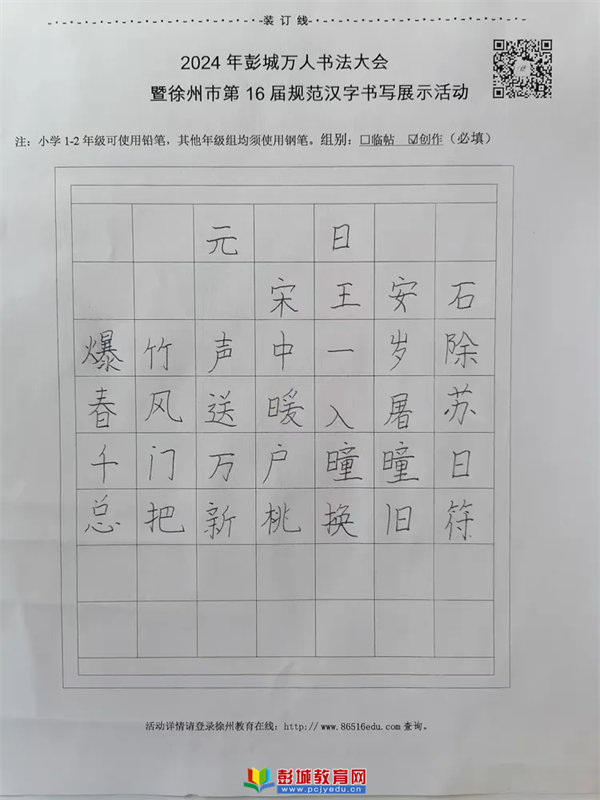 装订线
2024年彭城万人书法大会
暨徐州市第16届规范汉字书写展示活动
注：小学1-2年级可使用铅笔，其他年级组均须使用钢笔。组别：☐临帖 ☑创作（必填）
元日
宋王安石
爆竹声中一岁除
春风送暖入屠苏
千门万户曈曈日
总把新桃换旧符
活动详情请登录徐州教育在线：http://www.86516edu.com查询。
彭城教育网
www.pcjyedu.cn